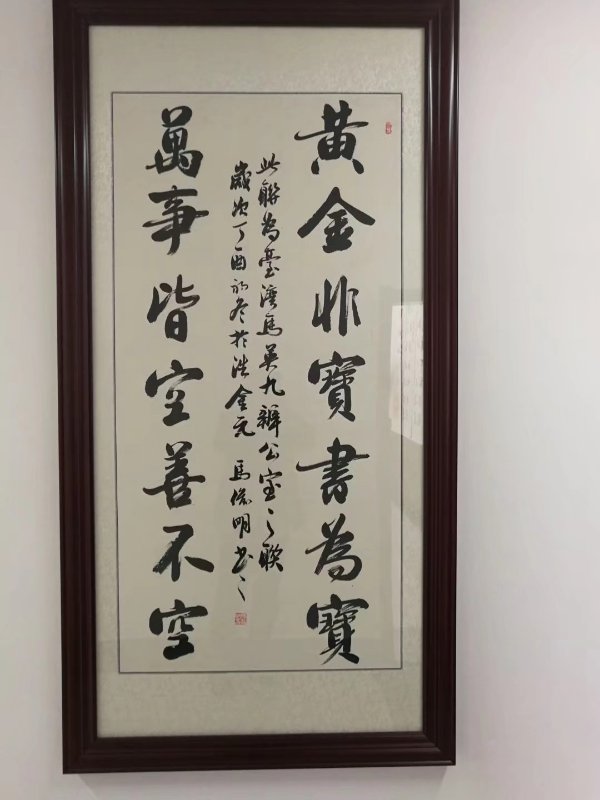 黄金非寶書為寶
此聯為臺灣馬英九辦公室之聯
歲次丁酉初冬於浩金元 馬德明書之
萬事皆空善不空